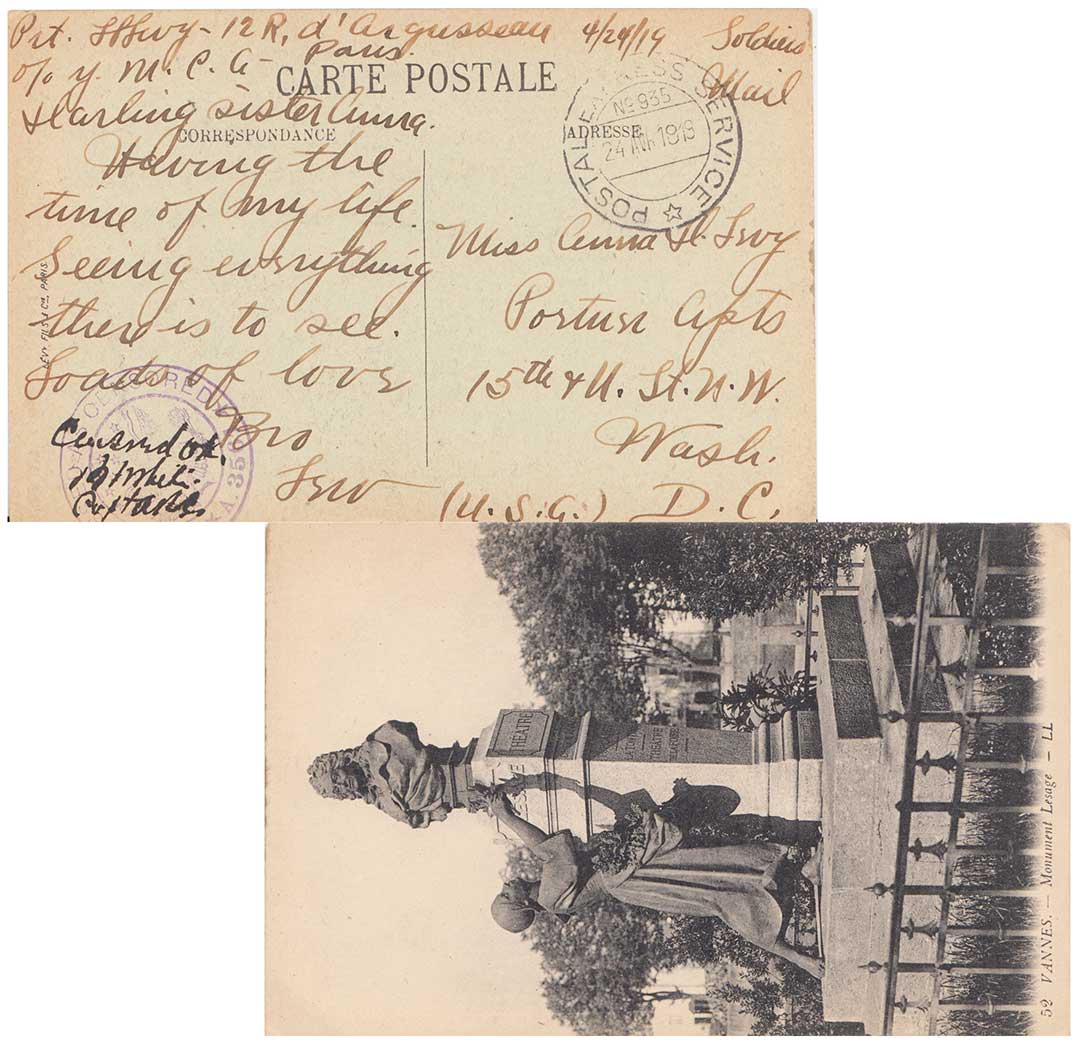 Pvt. LLevy - 12 R, d'Argusseau 4/24/19 Soldiers
Paris.
c/o Y. M. C. A - Mail
CARTE POSTALE
Darling sister Anna.
CORRESPONDANCE
ADRESSE
POSTAL EXPRESS SERVICE
No 935
24 AVR 1919
Having the
time of my life.
Seeing everything
there is to see.
Loads of love
Bro
Lew
LEVY FILS & Co. PARIS
Miss Anna H. Levy
Portner Apts
15th & U. St. N. W.
Wash.
(U. S. A.) D. C.
CENSORED
A. 35
Censored OK.
Capt
THEATRE
THEATRE
52 VANNES. — Monument Lesage — LL